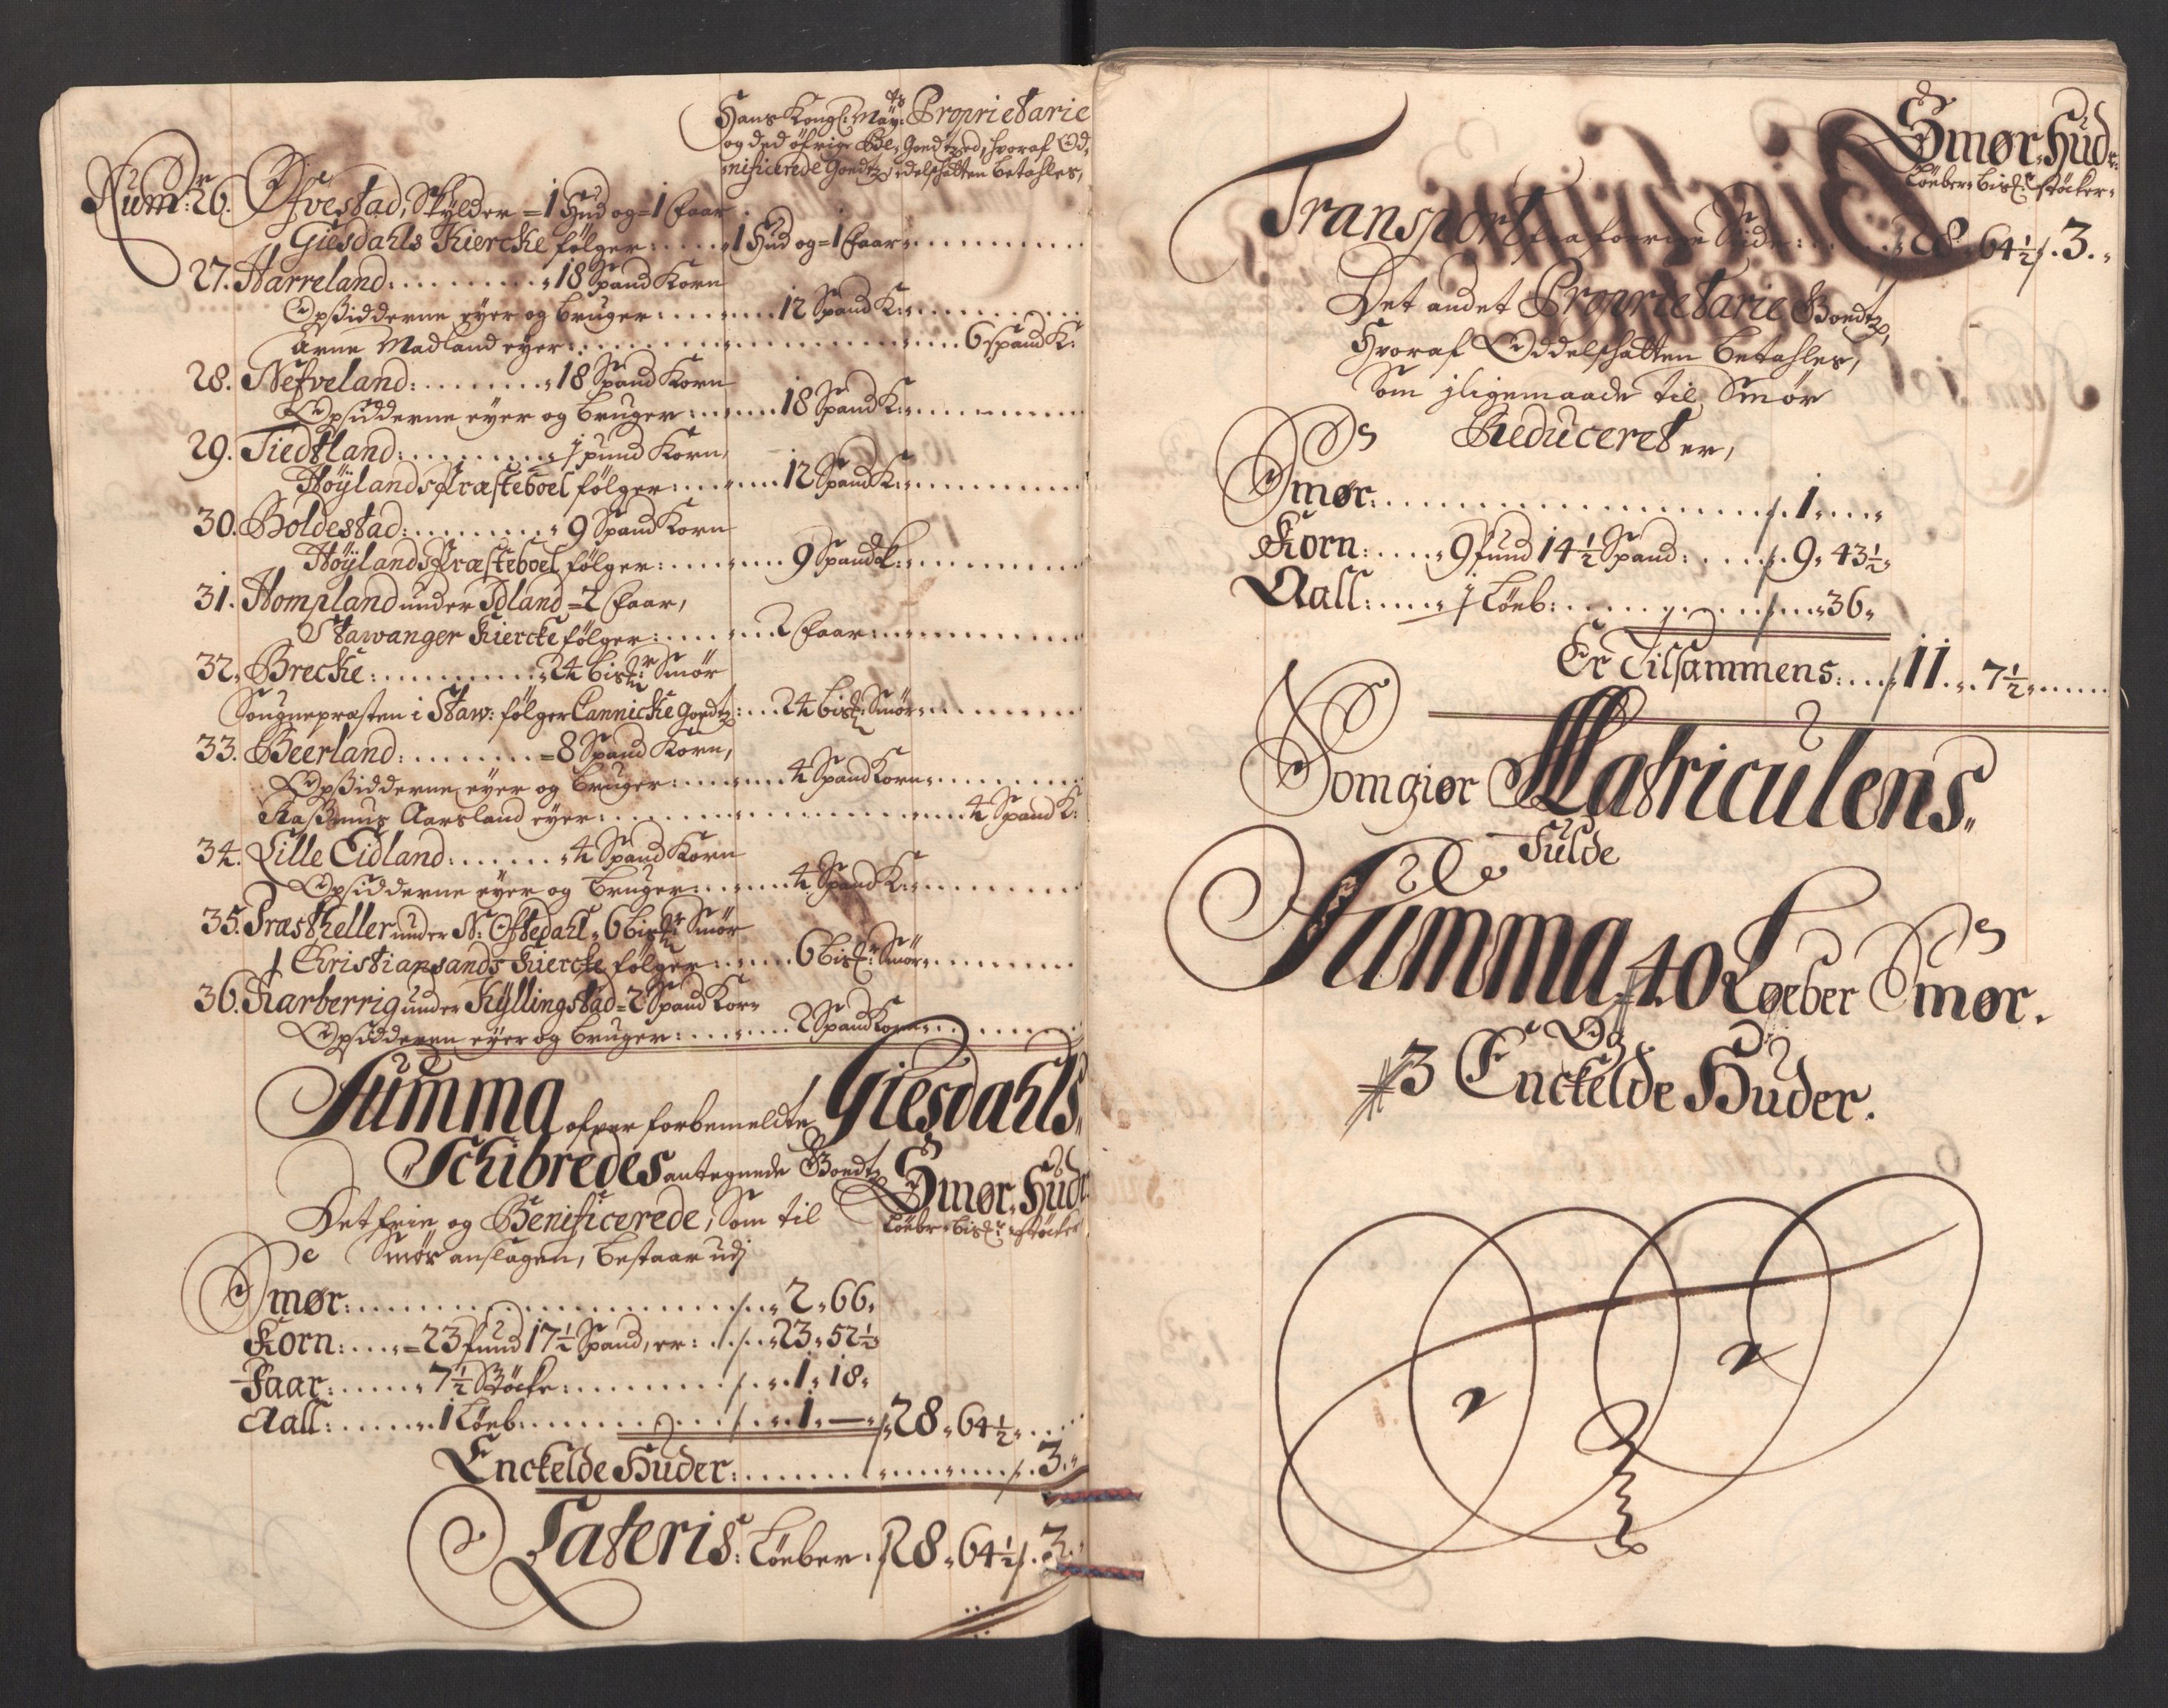 Hans Kongl: May:ts Proprietarie
og ded öfrige Be- Goedtz ed, hvoraf Od-
nificerede Goedtz, delschatten betahles,
Num:r 26. Öfvestad, Skylder = 1 Hud og = 1 Faar
Giesdahls Kiercke fölger: . . . . 1 Hud og = 1 Faar
27. Harreland: . . . . 18 Spand Korn
Opsidderne eyer og bruger: . . . . 12 Spand K:
Arne Madland eyer: . . . . 6 spand K:
28. Nefveland: . . . . 18 Spand Korn
Opsidderne eyer og bruger: . . . . 18 Spand K:
29. Tiedtland: . . . . j pund Korn,
Höylands Præsteboel fölger: . . . . 12 Spand K:
30. Boldestad: . . . . 9 Spand Korn
Höylands Præsteboel fölger: . . . . 9 Spand k:
31. Hompland under Idland = 2 Faar,
Stawanger Kiercke fölger: . . . . 2 Faar
32. Brecke: . . . . 24 bisk:r Smör
Sougnepræsten i Staw: fölger Cannicke goedtz: . . 24 bisk:r Smör
33. Beerland: . . . . = 8 Spand Korn,
Opsidderne eyer og bruger: . . . . 4 Spand Korn
Rasmus Aarsland eyer: . . . . 4 Spand K:
34. Lille Eidland: . . . . 4 Spand Korn
Opsidderne eyer og bruger: . . . . 4 Spand K:
35. Præstheller under N: Oftedahl, 6 bisk:r Smör
Christiansands Kiercke fölger . . . . 6 bisk:r Smör
36. Karberrig under Kyllingstad = 2 Spand Korn
Opsidderen eyer og bruger: . . . . 2 Spand Korn
Summa ofver forbemeldte Giesdahls
Schibredes antegnede Goedtz Smør, Hudr
Löebr, bisk:r stöcker
Det frie og Benificerede, som til
Smör anslagen, bestaar udj
Smør: . . . . 2 „ 66 „
Korn: . . . = 23 pund 17½ Spand, er: . . 23 „ 52½
Faar: . . . . 7½ Stöcke: . . . . 1 „ 18 „
Aall: . . . . 1 Löeb: . . . . 1 „ — „ 28 „ 64½
Enckelde Huder: . . . . 3 „
Lateris: Löeber . 28 „ 64½ . 3 „
Smør, Hudr:
Löeber, bisk:r stöcker
Transport fra foerige Side: . . . . 28 „ 64½ . 3 . „
Det andet Proprietarie Goedtz,
Hvoraf Oddelschatten betahles,
Som jligemaade til Smör
Reduceret er,
Smør: . . . . 1 „
Korn: . . . . 9 pund 14½ Spand: . . . . 9 „ 43½
Aall: . . . . ½ Löeb: . . . . 36 „
Er Tilsammens: . . . 11 . „ 7½ „
Som giør Matriculens
Fulde
Summa 40 Løeber Smør.
Og
3 Enckelde Huder.